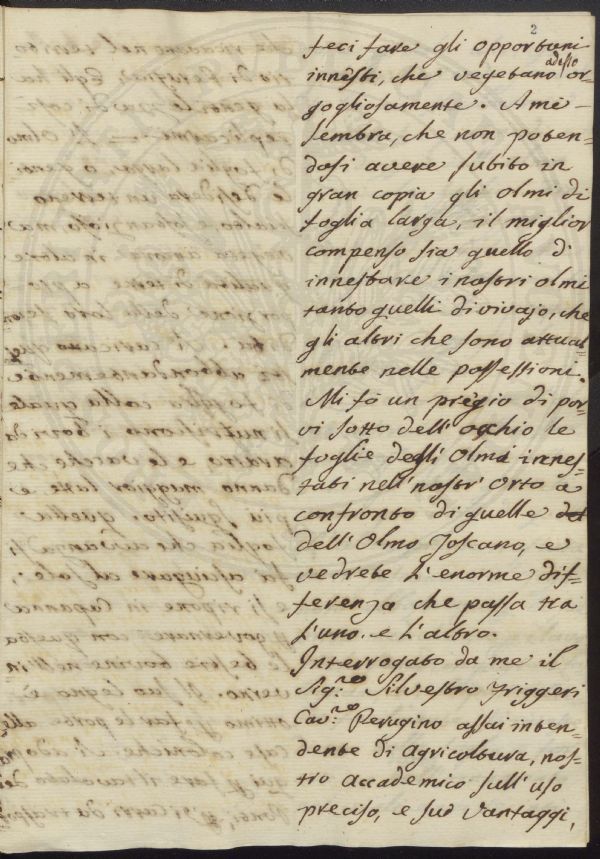 2
feci fare gli opportuni
innesti, che vegetano adesso or=
gogliosamente. A me
sembra, che non poten=
dosi avere subito in
gran copia gli Olmi di
foglia larga, il miglior
compenso sia quello d'
innestare i nostri olmi
tanto quelli di vivajo, che
gli altri che sono attual=
mente nelle possessioni.
Mi fò un pregio di por=
vi sotto dell' occhio le
foglie degli Olmi innes=
tati nell' nostr' Orto a
confronto di quelle
dell' Olmo Toscano, e
vedrete l' enorme dif=
ferenza che passa tra
l' uno, e l' altro.
Interrogato da me il
Sig.re Silvestro Friggeri
Cav.re Perugino assai inten=
dente di Agricoltura, nos=
tro Accademico sull' uso
preciso, e suo vantaggi,